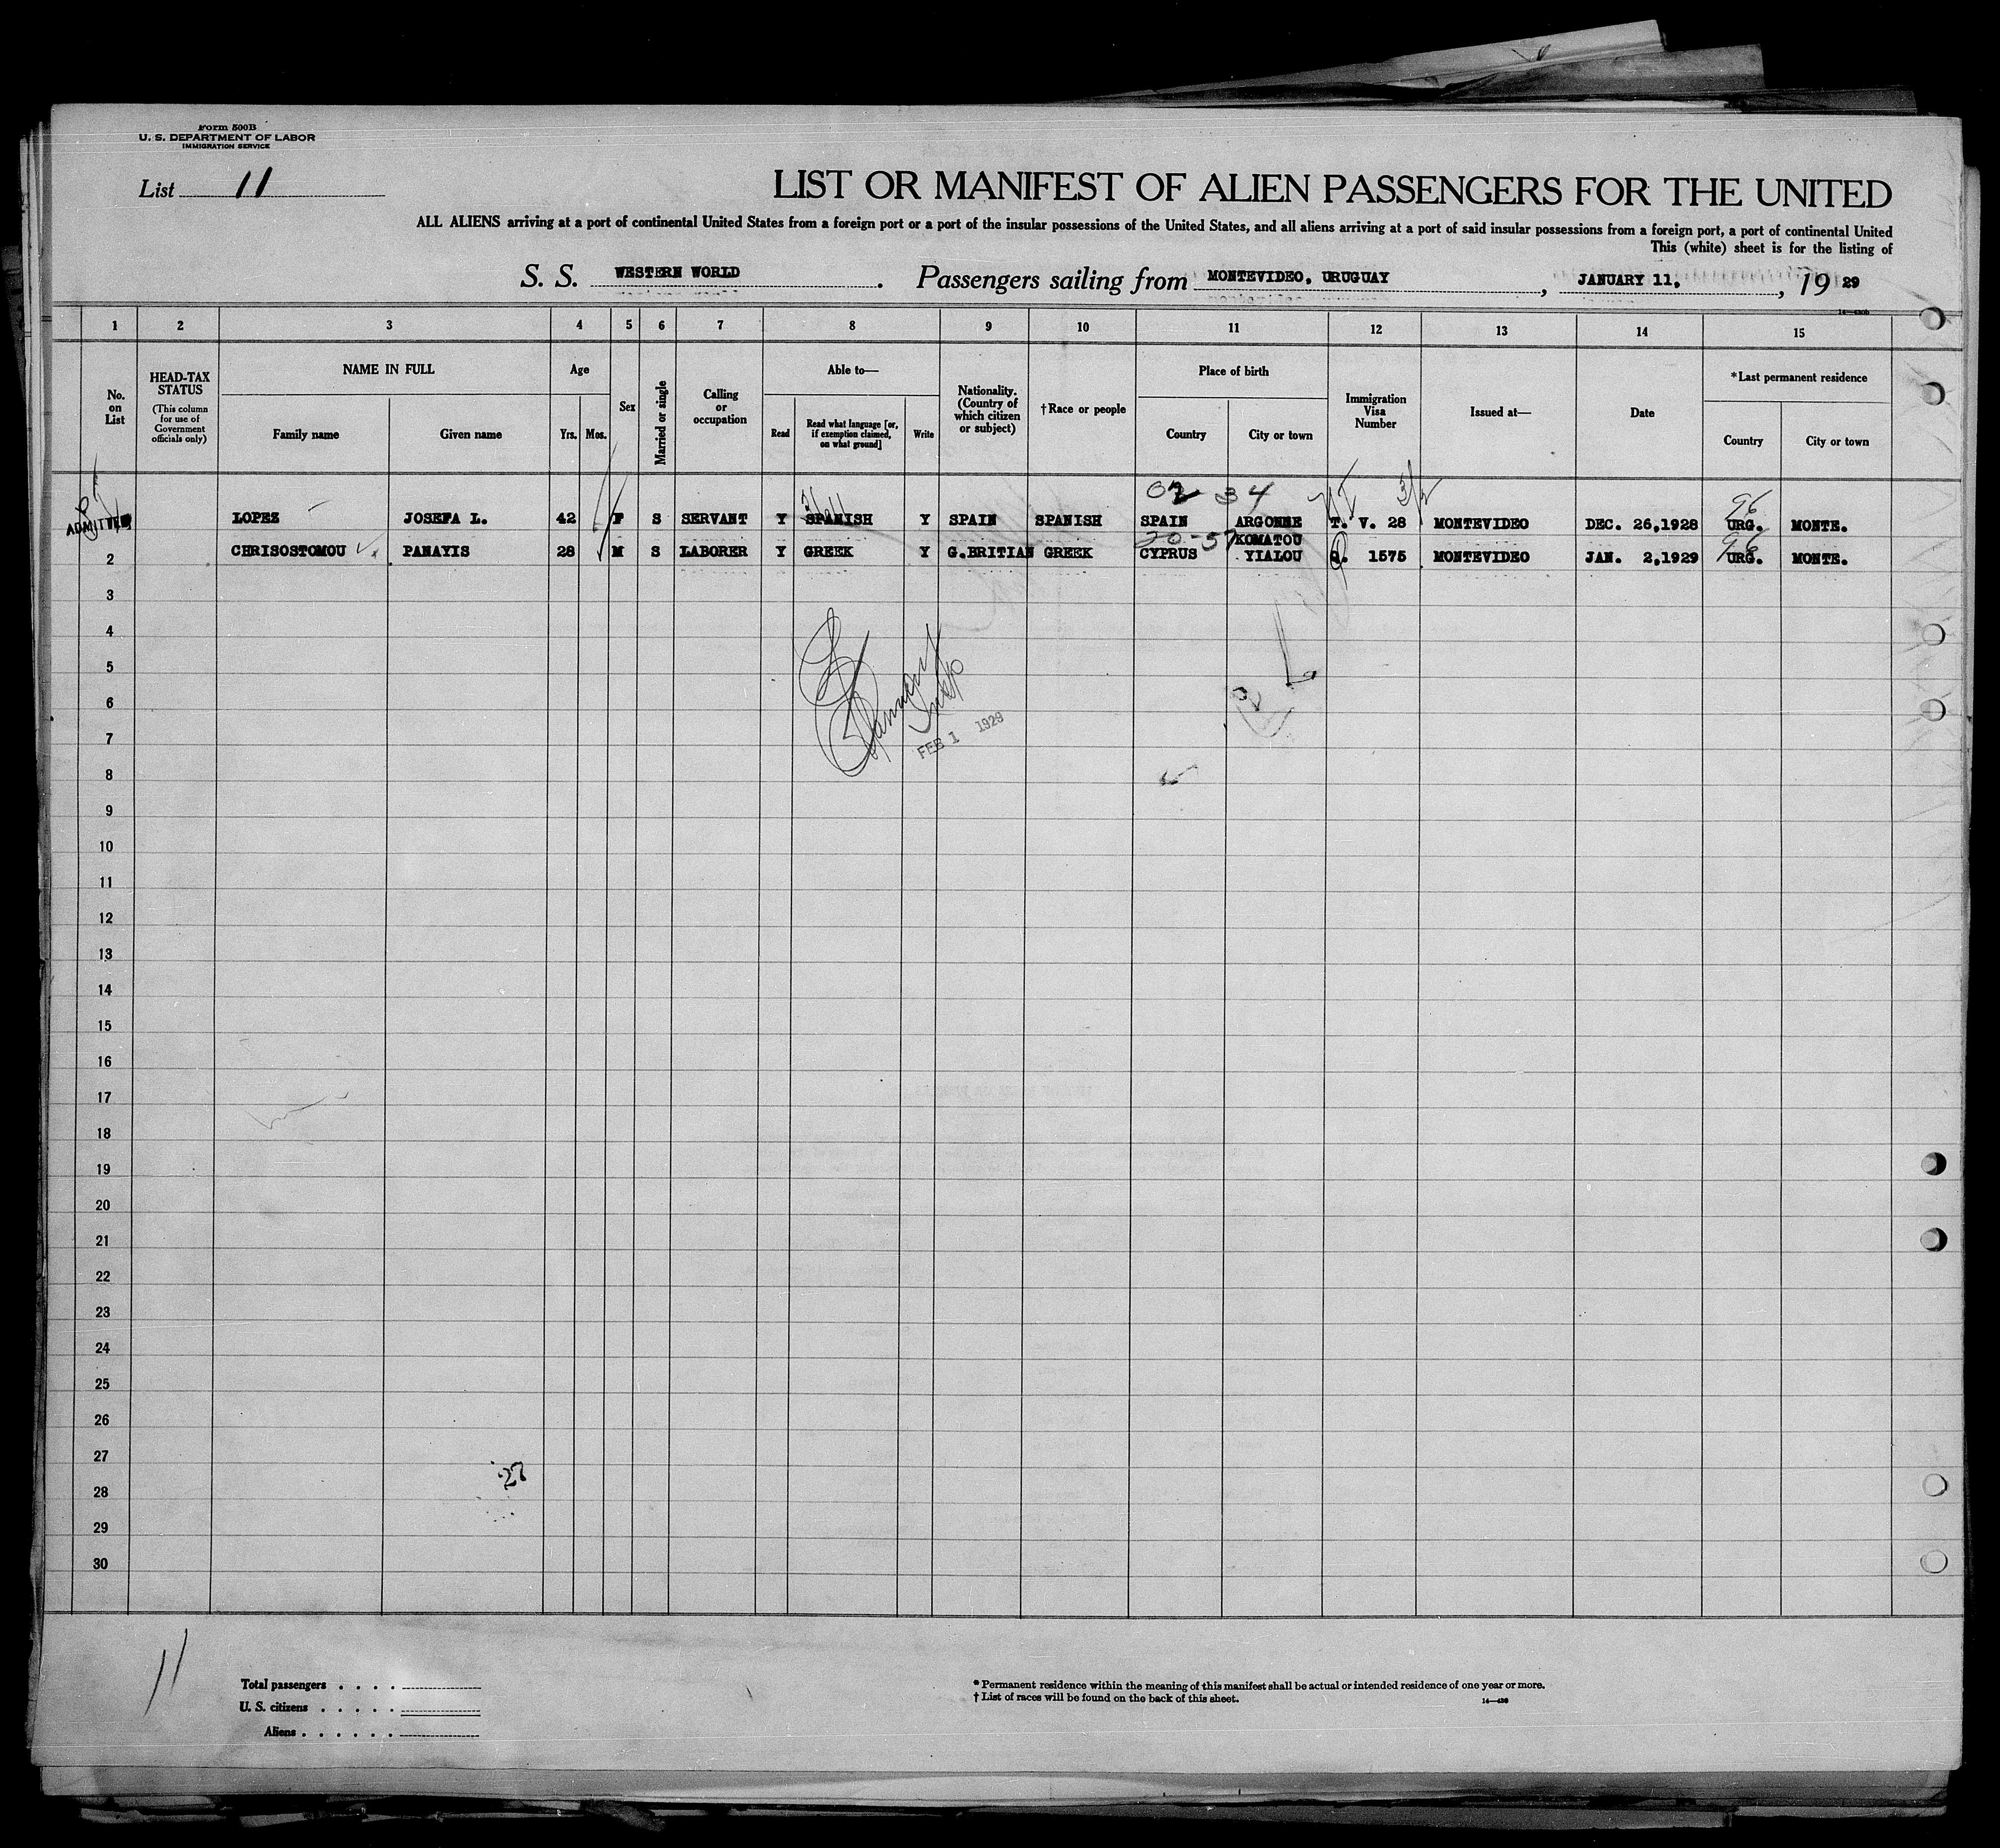 Form 500B
U. S. DEPARTMENT OF LABOR
IMMIGRATION SERVICE
List 11
LIST OR MANIFEST OF ALIEN PASSENGERS FOR THE UNITED
ALL ALIENS arriving at a port of continental United States from a foreign port or a port of the insular possessions of the United States, and all aliens arriving at a port of said insular possessions from a foreign port, a port of continental United
This (white) sheet is for the listing of
S. S. WESTERN WORLD. Passengers sailing from MONTEVIDEO, URUGUAY, JANUARY 11, 19 29
1 2 3 4 5 6 7 8 9 10 11 12 13 14 15
No. on List
HEAD-TAX STATUS
(This column for use of Government officials only)
NAME IN FULL
Family name
Given name
Age
Yrs.
Mos.
Sex
Married or single
Calling or occupation
Able to—
Read
Read what language [or, if exemption claimed, on what ground]
Write
Nationality. (Country of which citizen or subject)
†Race or people
Place of birth
Country
City or town
Immigration Visa Number
Issued at—
Date
*Last permanent residence
Country
City or town
02 34
96
ADMITTED LOPEZ JOSEFA L. 42 F S SERVANT Y SPANISH Y SPAIN SPANISH SPAIN ARGONNE T. V. 28 MONTEVIDEO DEC. 26,1928 URG. MONTE.
20-57 KOMATOU 96
2 CHRISOSTOMOU PANAYIS 28 M S LABORER Y GREEK Y G.BRITIAN GREEK CYPRUS YIALOU Q. 1575 MONTEVIDEO JAN. 2,1929 URG. MONTE.
3
4
5
6
7
FEB 1 1929
8
9
10
11
12
13
14
15
16
17
18
19
20
21
22
23
24
25
26
27
27
28
29
30
11
Total passengers
U. S. citizens
Aliens
* Permanent residence within the meaning of this manifest shall be actual or intended residence of one year or more.
† List of races will be found on the back of this sheet.